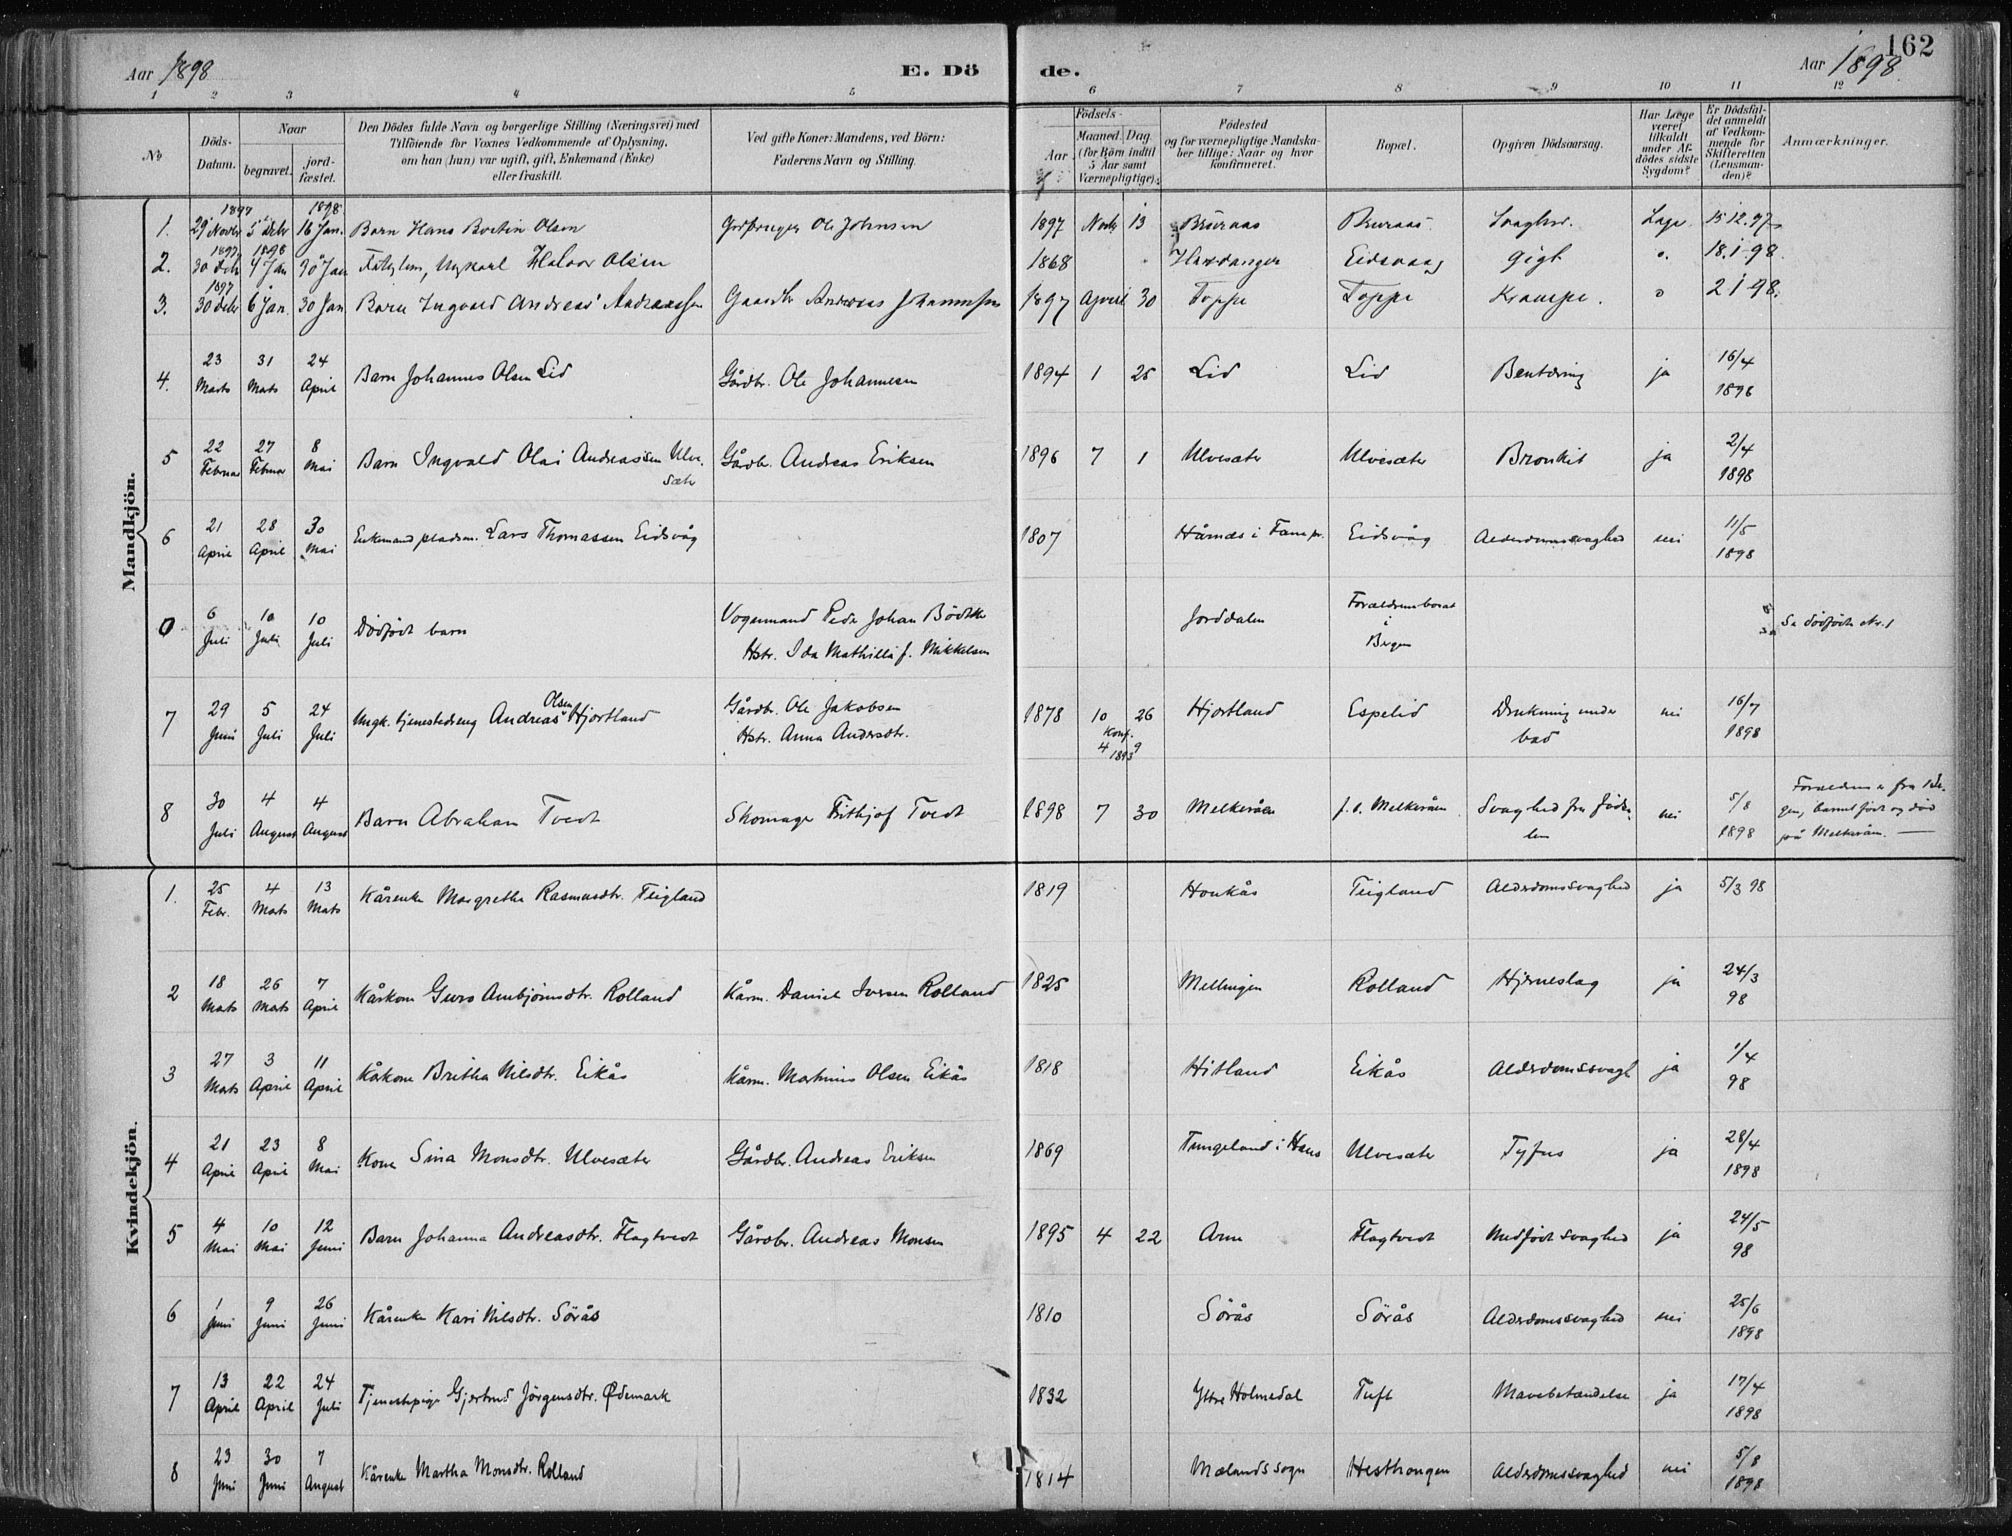 Aar 1898
E. Döde.
Aar 1898
162
1 2 3 4 5 6 7 8 9 10 11 12
No
Döds-Datum.
Naar
begravet.
jord-fæstet.
Den Dödes fulde Navn og borgerlige Stilling (Næringsvei) med
Tilföiende for Voxnes Vedkommende af Oplysning,
om han (hun) var ugift, gift, Enkemand (Enke)
eller fraskilt.
Ved gifte Koner: Mandens, ved Börn:
Faderens Navn og Stilling.
Födsels-
Aar. Maaned. Dag.
(for Börn indtil
5 Aar samt
Værnepligtige).
Födested
og for værnepligtige Mandska-
ber tillige: Naar og hvor
konfirmeret.
Bopæl.
Opgiven Dödsaarsag.
Har Læge
været
tilkaldt
under Af-
dödes sidste
Sygdom?
Er Dödsfal-
det anmeldt
af Vedkom-
mende for
Skifteretten
(Lensman-
den)?
Anmærkninger.
Mandkjön.
1897 1898
1. 29 Novbr 5 Debr 16 Jan. Barn Hans Olsen Ole Johnsen 1897 13 Bruraas Bruraas 15 12. 97
1897 1898
2. 30 Debr 4 Jan 30 Jan Ungkarl Halvor Olsen 1868 Hardanger Eidsvaag Gigt " 18.1-98.
1897
3. 30 Debr 6 Jan. 30 Jan Barn Ingvald Andreas Andreassen Gaardbr Andreas Johannessen 1897 April 30 Toppe Toppe Krampe. " 2 1-98.
4. 23 Marts 31 Mats 24 April Barn Johannes Olsen Lid Gårdbr. Ole Johannesen 1894 1 25 Lid Lid ja 16/4 1898
5 22 Februar 27 Februar 8 Mai Barn Ingvald Olai Andreassen Ulvesæter Gårdbr. Andreas Eriksen 1896 7 1 Ulvesæter Ulvesæter Bronkit ja 2/4 1898
6 21 April 28 April 30 Mai Enkemand pladsm. Lars Thomassen Eidsvåg 1807 Hårnæs i Fane pr. Eidsvåg Alderdomssvaghed nei 11/5 1898
0 6 Juli 10 Juli 10 Juli Dödfödt barn Vognmand Peder Johan Bödtker Hstr. Ida Mathilde f. Mikkelsen Jorddalen Forældrene borat i Bergen Se dödfödte No. 1
7 29 Juni 5 Juli 24 Juli Ungk. tjenestedreng Andreas Olsen Hjortland Gårdbr. Ole Jakobsen Hstr. Anna Andersdtr. 1878 10 26 Konf. 4 1893 9 Hjortland Espelid Drukning under bad nei 16/7 1898
8 30 Juli 4 August 4 August Barn Abraham Tvedt Skomager Frithjof Tvedt 1898 7 30 Melkeråen f. o. Melkeråen Svaghed fra födselen nei 5/8 1898 Forældrene er fra Bergen, barnet födt og död på Melkeråen.
Kvindekjön.
1. 25 Febr. 4 Mats 13 Mats Kårenke Margrethe Rasmusdtr. Teigland 1819 Haukås Teigland Alderdomssvaghed ja 5/3 98
2 18 Mats 26 Mats 7 April Kårkone Guro Ambjörnsdtr. Rolland Kårm. Daniel Iversen Rolland 1825 Mellingen Rolland Hjerneslag ja 24/3 98
3 27 Mats 3 April 11 April Kårkone Britha Nilsdtr. Eikås Kårm. Martinus Olsen Eikås 1818 Hitland Eikås Alderdomssvagh ja 1/4 98
4 21 April 23 April 8 Mai Kone Sina Monsdtr. Ulvesæter Gårdbr. Andreas Eriksen 1869 Tungeland i Haus Ulvesæter Tyfus ja 28/4 1898
5 4 Mai 10 Mai 12 Juni Barn Johanna Andreasdtr. Flagtvedt Gårdbr. Andreas Monsen 1895 4 22 Arne Flagtvedt Medfödt svaghed ja 24/5 98
6 1 Juni 9 Juni 26 Juni Kårenke Kari Nilsdtr. Sörås 1810 Sörås Sörås Alderdomssvaghed nei 25/6 1898
7 13 April 22 April 24 Juli Tjenestepige Gjertrud Jörgensdtr. Ødemark 1832 Yttre Holmedal Tuft Mavebetændelse ja 17/4 1898
8 23 Juni 30 Juni 7 August Kårenke Martha Monsdtr. Rolland 1814 Mælands sogn Hesthaugen Alderdomssvaghed nei 5/8 1898